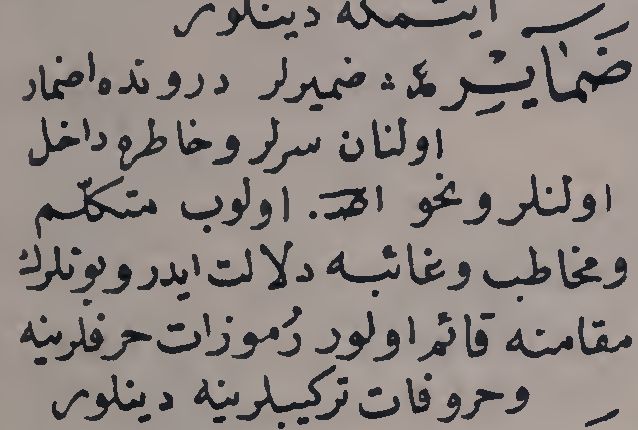 ايتمكه دينلور
ضَمٰايِٓرْ ع : ضميرلر درونده اضمار
اولنان سرلر و خاطره داخل
اولنلر و نحو اولوب متكلّم
و مخاطب و غائبه دلالت ايدر و بونلرڭ
مقامنه قائم اولور رُموزات حرفلرينه
و حروفات تركيبلرينه دينلور